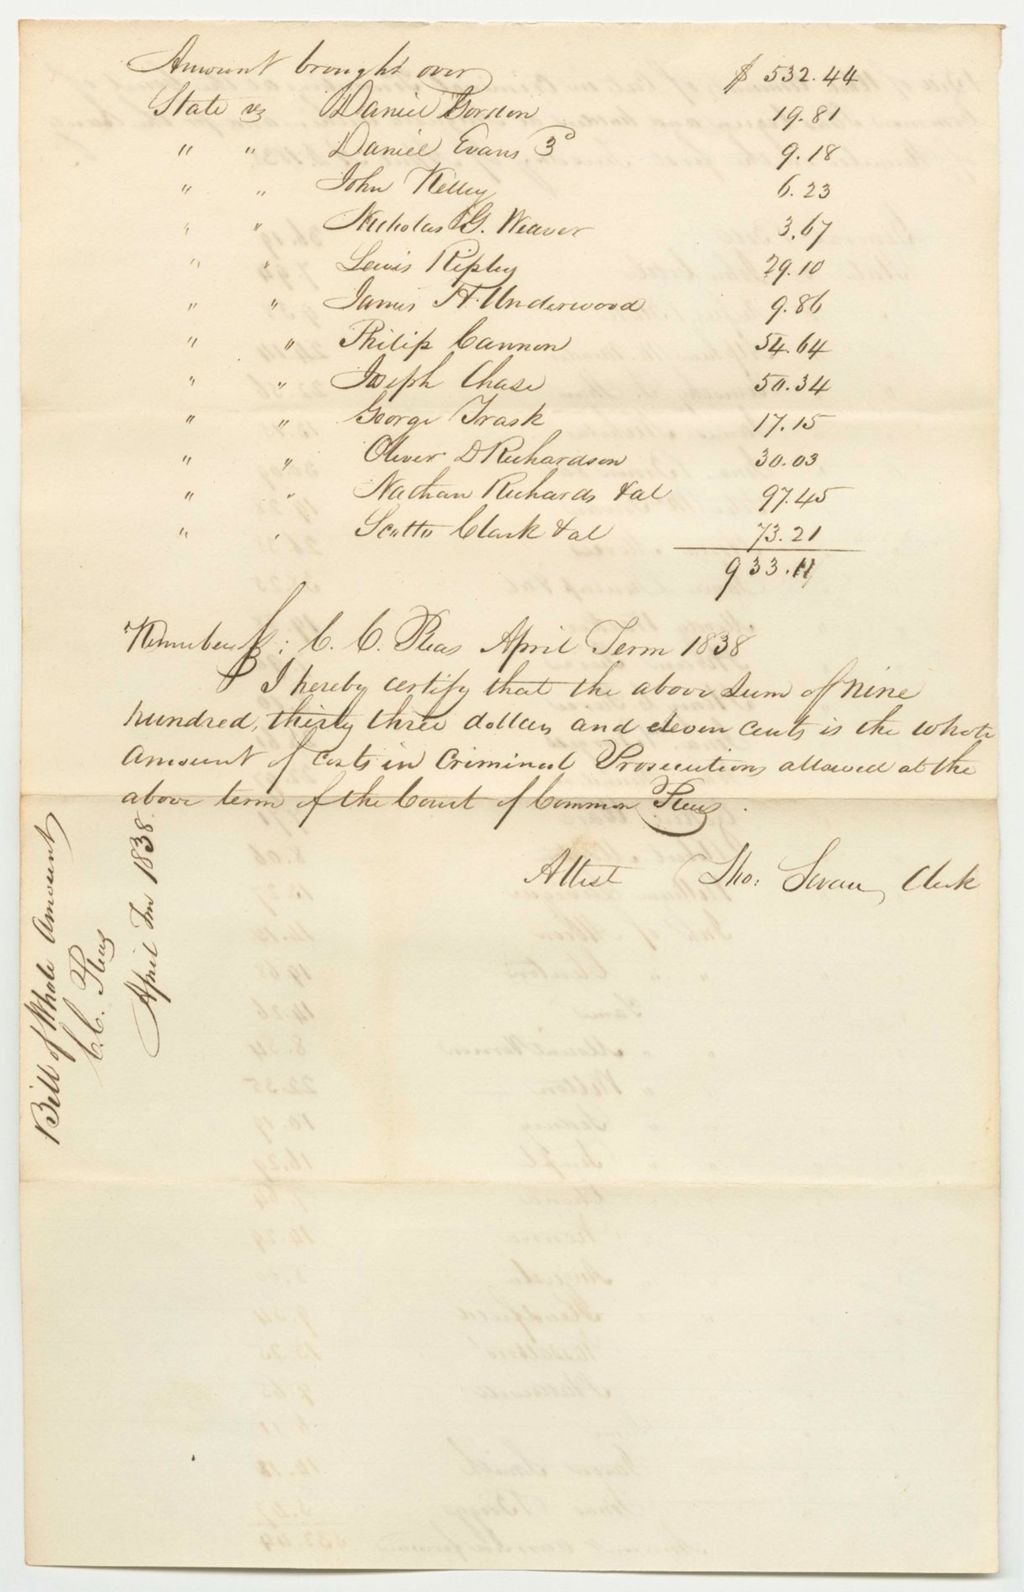 Amount brought over $ 532.44
State vs Daniel Gorden 19.81
" " Daniel Evans 3d 9.18
" " John Kelley 6.23
" " Nicholas G. Weaver 3.67
" " Lewis Ripley 29.10
" " James H. Underwood 9.86
" " Philip Cannon 54.64
" " Joseph Chase 50.34
" " George Trask 17.15
" " Oliver D Richardson 30.03
" " Nathan Richards & al 97.45
" " Scotto Clark & al 73.21
933.11
Kennebec ss: C. C. Pleas April Term 1838
I hereby certify that the above sum of nine
hundred, thirty three dollars and eleven cents is the whole
amount of Costs in Criminal Prosecutions allowed at the
above term of the Court of Common Pleas.
Attest Tho: Swan, Clerk
Bill of Whole Amount
C.C. Pleas
April Tm 1838.